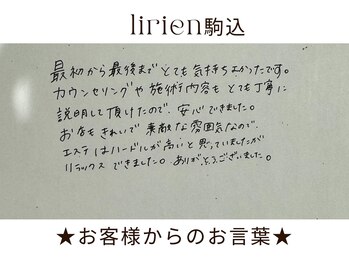 lirien駒込
最初から最後までとても気持ちよかったです。
カウンセリングや施術内容もとても丁寧に
説明して頂けたので、安心できました。
お店もきれいで素敵な雰囲気なので、
エステはハードルが高いと思っていましたが
リラックスできました。ありがとうございました。
★お客様からのお言葉★